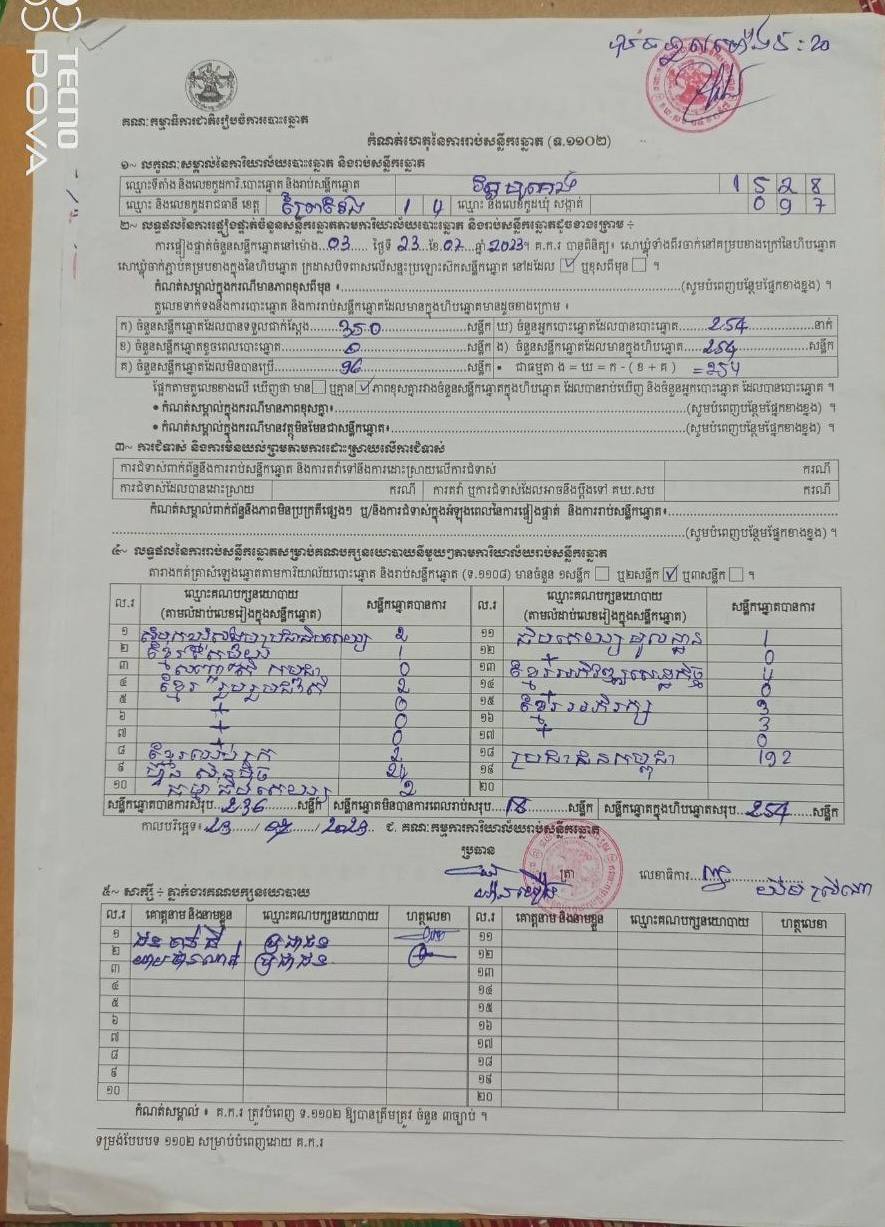 TECNO
POVA
គណៈកម្មាធិការជាតិរៀបចំការបោះឆ្នោត
កំណត់ហេតុនៃការរាប់សន្លឹកឆ្នោត (ទ.១១០២)
១~ លក្ខណៈសម្គាល់នៃការិយាល័យបោះឆ្នោត និងរាប់សន្លឹកឆ្នោត
ឈ្មោះទីតាំង និងលេខកូដការិ.បោះឆ្នោត និងរាប់សន្លឹកឆ្នោត 1 5 2 8
ឈ្មោះ និងលេខកូដរាជធានី ខេត្ត ព្រៃវែង 1 4 ឈ្មោះ និងលេខកូដឃុំ សង្កាត់ 0 9 7
២~ លទ្ធផលនៃការផ្ទៀងផ្ទាត់ចំនួនសន្លឹកឆ្នោតតាមការិយាល័យបោះឆ្នោតដូចខាងក្រោម ÷
ការផ្ទៀងផ្ទាត់ចំនួនសន្លឹកឆ្នោតនៅម៉ោង...03..... ថ្ងៃទី 23..ខែ.07...ឆ្នាំ 2023។ គ.ក.រ បានពិនិត្យ៖ សោឃ្លុំទាំងពីរចាក់នៅគម្របខាងក្រៅនៃហិបឆ្នោត
សោឃ្លុំចាក់ភ្ជាប់គម្របខាងក្នុងនៃហិបឆ្នោត ក្រដាសបិទពាសលើសន្ទះប្រឡោះសិកសន្លឹកឆ្នោត នៅដដែល ☑ ឬខុសពីមុន ☐ ។
កំណត់សម្គាល់ក្នុងករណីមានភាពខុសពីមុន ៖......(សូមបំពេញបន្ថែមផ្នែកខាងខ្នង) ។
តួលេខទាក់ទងនឹងការបោះឆ្នោត និងការរាប់សន្លឹកឆ្នោតដែលមានក្នុងហិបឆ្នោតមានដូចខាងក្រោម ៖
ក) ចំនួនសន្លឹកឆ្នោតដែលបានទទួលជាក់ស្តែង......350......សន្លឹក ឃ) ចំនួនអ្នកបោះឆ្នោតដែលបានបោះឆ្នោត......254......នាក់
ខ) ចំនួនសន្លឹកឆ្នោតខូចពេលបោះឆ្នោត......0......សន្លឹក ង) ចំនួនសន្លឹកឆ្នោតដែលមានក្នុងហិបឆ្នោត......254......សន្លឹក
គ) ចំនួនសន្លឹកឆ្នោតដែលមិនបានប្រើ......96......សន្លឹក • ជាធម្មតា ង = ឃ = ក - ( ខ + គ ) = 254
ផ្អែកតាមតួលេខខាងលើ ឃើញថា មាន ☐ ឬគ្មាន ☑ ភាពខុសគ្នារវាងចំនួនសន្លឹកឆ្នោតក្នុងហិបឆ្នោត ដែលបានរាប់ឃើញ និងចំនួនអ្នកបោះឆ្នោត ដែលបានបោះឆ្នោត ។
• កំណត់សម្គាល់ក្នុងករណីមានភាពខុសគ្នា៖......(សូមបំពេញបន្ថែមផ្នែកខាងខ្នង) ។
• កំណត់សម្គាល់ក្នុងករណីមានវត្ថុមិនមែនជាសន្លឹកឆ្នោត៖......(សូមបំពេញបន្ថែមផ្នែកខាងខ្នង) ។
៣~ ការជំទាស់ និងការមិនយល់ព្រមតាមការដោះស្រាយលើការជំទាស់
ការជំទាស់ពាក់ព័ន្ធនឹងការរាប់សន្លឹកឆ្នោត និងការតវ៉ាទៅនឹងការដោះស្រាយលើការជំទាស់ ករណី
ការជំទាស់ដែលបានដោះស្រាយ ករណី ការតវ៉ា ឬការជំទាស់ដែលអាចនឹងប្តឹងទៅ គឃ.សប ករណី
កំណត់សម្គាល់ពាក់ព័ន្ធនឹងភាពមិនប្រក្រតីផ្សេងៗ ឬ/និងការជំទាស់ក្នុងអំឡុងពេលនៃការផ្ទៀងផ្ទាត់ និងការរាប់សន្លឹកឆ្នោត៖......
......(សូមបំពេញបន្ថែមផ្នែកខាងខ្នង) ។
៤~ លទ្ធផលនៃការរាប់សន្លឹកឆ្នោតសម្រាប់គណបក្សនយោបាយនីមួយៗតាមការិយាល័យរាប់សន្លឹកឆ្នោត
តារាងកត់ត្រាសំឡេងឆ្នោតតាមការិយាល័យបោះឆ្នោត និងរាប់សន្លឹកឆ្នោត (ទ.១១០៨) មានចំនួន ១សន្លឹក ☐ ឬ២សន្លឹក ☑ ឬ៣សន្លឹក ☐ ។
ល.រ ឈ្មោះគណបក្សនយោបាយ (តាមលំដាប់លេខរៀងក្នុងសន្លឹកឆ្នោត) សន្លឹកឆ្នោតបានការ ល.រ ឈ្មោះគណបក្សនយោបាយ (តាមលំដាប់លេខរៀងក្នុងសន្លឹកឆ្នោត) សន្លឹកឆ្នោតបានការ
១ 2 ១១ ជិបតេយ្យមូលដ្ឋាន 1
២ 1 ១២ + 0
៣ 0 ១៣ ខ្មែរអភិវឌ្ឍន៍សេដ្ឋកិច្ច 4
៤ ខ្មែរ រួបរួមជាតិ 2 ១៤ + 0
៥ + 0 ១៥ ខ្មែរអភិរក្ស 3
៦ + 0 ១៦ + 3
៧ + 0 ១៧ + 0
៨ ខ្មែរឈប់ក្រ 2 ១៨ ប្រជាជនកម្ពុជា 192
៩ ហ៊្វុនស៊ិនប៉ិច 24 ១៩
១០ ធម្មាធិបតេយ្យ 2 ២០
សន្លឹកឆ្នោតបានការសរុប..236......សន្លឹក សន្លឹកឆ្នោតមិនបានការពេលរាប់សរុប...18......សន្លឹក សន្លឹកឆ្នោតក្នុងហិបឆ្នោតសរុប...254......សន្លឹក
កាលបរិច្ឆេទ៖ 23....../ 07....../ 2023.. ជ. គណៈកម្មការការិយាល័យរាប់សន្លឹកឆ្នោត
ប្រធាន
ត្រា លេខាធិការ......
៥~ សាក្សី ÷ ភ្នាក់ងារគណបក្សនយោបាយ
ល.រ គោត្តនាម និងនាមខ្លួន ឈ្មោះគណបក្សនយោបាយ ហត្ថលេខា ល.រ គោត្តនាម និងនាមខ្លួន ឈ្មោះគណបក្សនយោបាយ ហត្ថលេខា
១ ប្រជាជន ១១
២ ប្រជាជន ១២
៣ ១៣
៤ ១៤
៥ ១៥
៦ ១៦
៧ ១៧
៨ ១៨
៩ ១៩
១០ ២០
កំណត់សម្គាល់ ៖ គ.ក.រ ត្រូវបំពេញ ទ.១១០២ ឱ្យបានត្រឹមត្រូវ ចំនួន ៣ច្បាប់ ។
ទម្រង់បែបបទ ១១០២ សម្រាប់បំពេញដោយ គ.ក.រ